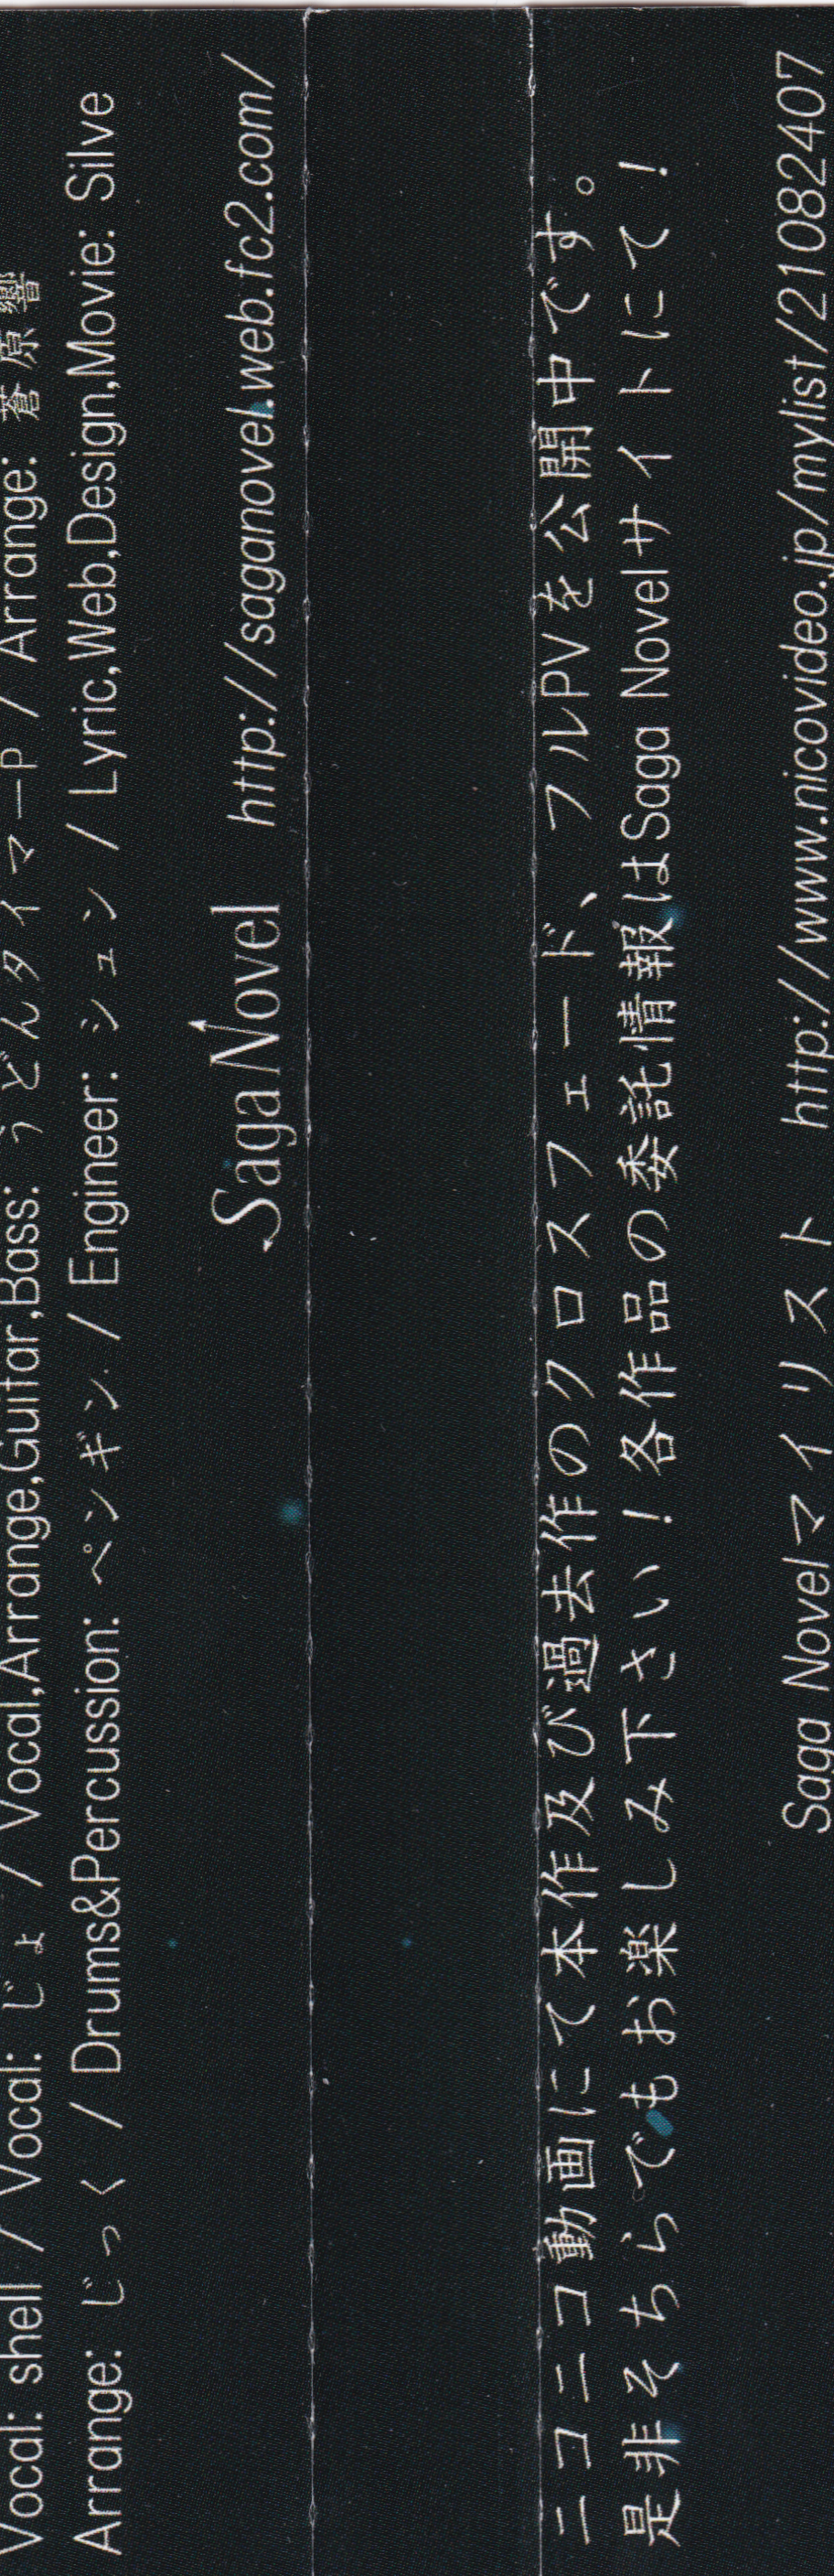 Vocal: shell / Vocal: じょ / Vocal,Arrange,Guitar,Bass: うどんタイマーP / Arrange: 蒼原響
Arrange: じっく / Drums&Percussion: ペンギン / Engineer: シュン / Lyric,Web,Design,Movie: Silve
Saga Novel http://saganovel.web.fc2.com/
ニコニコ動画にて本作及び過去作のクロスフェード、フルPVを公開中です。
是非そちらでもお楽しみ下さい！各作品の委託情報はSaga Novelサイトにて！
Saga Novelマイリスト http://www.nicovideo.jp/mylist/21082407